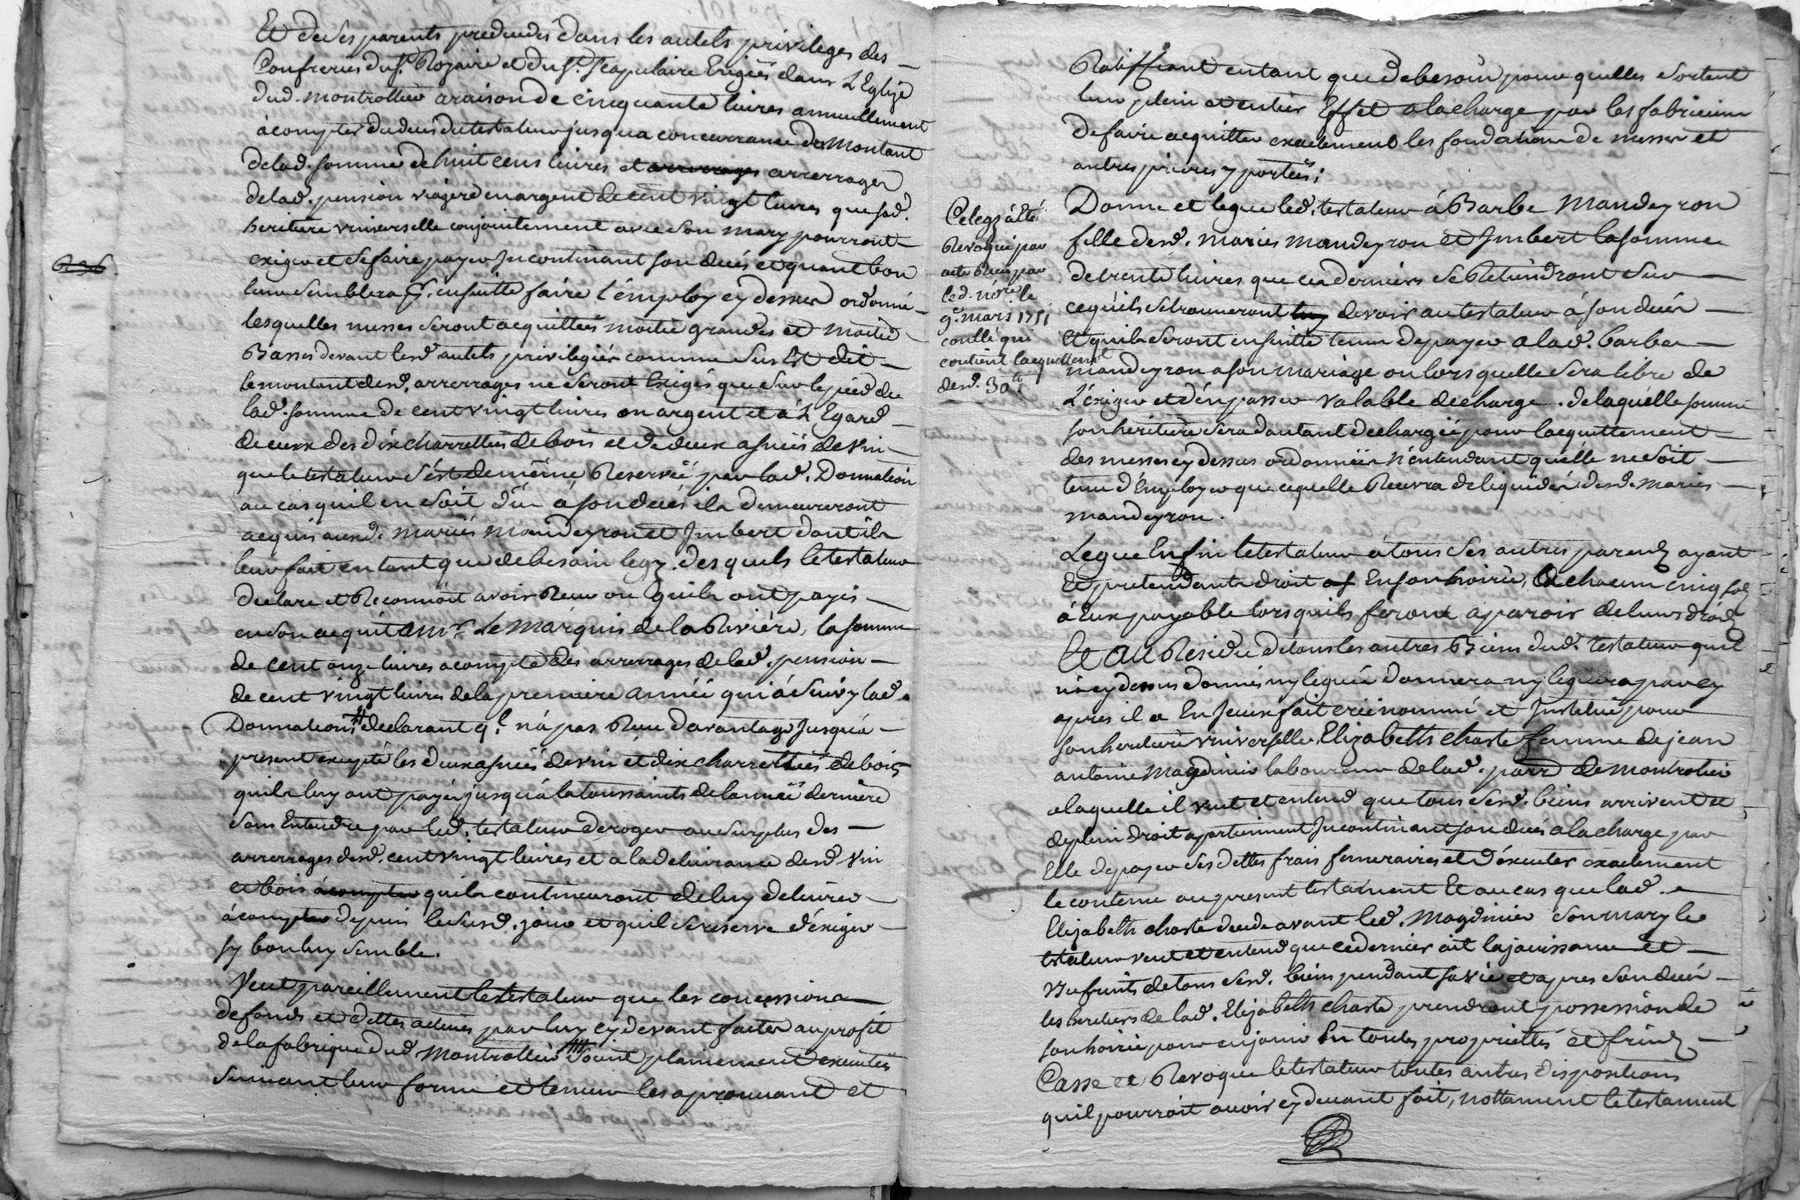 Et de ses parents predecedés dans les autels privileges des
Confreries du St. Rozaire et du St. Scapulaire Erigées dans L'Eglize
dud. montrottier a raison de cinquante livres annuellement
à compter du deces du testateur jusqua concurrance du Montant
de lad. somme de huit cens livres et arrerages arrerrages
de lad. pension viagere en argent de cent vingt livres que sad.
heritiere universelle conjointement avec son mary pourront
exiger et se faire payer Incontinant son decés et quant bon
leur semblera et ensuitte faire l'employ cy dessus ordonné
lesquelles messes seront acquittées moitié grandes et moitié
Basses devant lesd. autels privilegiés comme sus Est dit
le montant desd. arrerrages ne seront Exigés que sur le pied de
lad. somme de cent vingt livres en argent et à L'Egard
de ceux des dix charrettées de bois et de deux asnées de vin
que le testateur s'est de même Reservé par lad. Donnation
au cas quil en soit dû a son deces ils demeureront
acquis auxd. mariés mandeyron et Imbert dont il
leur fait en tant que de besoin legs. desquels le testateur
declare et Reconnoit avoir Receu ou quils ont payés
en son acquit a mr. Le Marquis de la Riviere, la somme
de cent onze livres a compte des arrerrages de lad. pension
de cent vingt livres de la premiere année qui à suivy lad.
Donnation declarant q'l n'a pas Receu davantage Jusqu'à
present excepté les deux asnées de vin et dix charrettées de bois
quils luy ont payés jusqu'à la toussaints de l'année derniere
sans Entendre par led. testateur deroger au surplus des
arrerrages desd. cent vingt livres et a la delivrance desd. vin
et bois à compter quils continueront de luy delivrer
à compter depuis le susd. jour et quil se reserve d'exiger
sy bon luy semble.
Veut pareillement le testateur que les concessions
de fonds et dettes actives par luy cy devant faites au profit
de la fabrique dud. Montrottier soient plainement executées
suivant leur forme et teneur les aprouvant et
Ratiffiant entant que de besoin pour quelles sortent
leur plein et entier Effet a la charge par les fabriciens
de faire acquitter exactement les fondations de messes et
autres prieres y portées;
Donne et legue led. testateur à Barbe Mandeyron
fille desd. mariés mandeyron et Imbert la somme
de trente livres que ces derniers se Retiendront sur
ce qu'ils se trouveront luy devoir au testateur à son decés
et quils seront ensuitte tenus de payer a lad. barbe
mandeyron a son mariage ou lorsquelle sera libre de
L'exiger et d'en passer valable decharge. de laquelle somme
son heritiere sera dautant dechargée pour lacquittement
des messes cy dessus ordonnées n'entendant quelle ne soit
tenue d'Employer que ce quelle Recevra de liquide desd. mariés
mandeyron.
Celegs a Eté
Revoqué par
acte Receu par
led. nore le
9e mars 1751
conllé qui
contient lacquittemt
desd. 30 ll
Legue Enfin le testateur à tous ses autres parents ayant
et pretendants droit Enson hoirie, a chacun cinq sols
à Eux payable lorsquils feront aparoir de leurs droits
Et au Residu de tous les autres Biens dud. testateur quil
n'a cy dessus donnés ny legués donnera ny leguera par cy
apres il a En Iceux fait créé nommé et Institué pour
son heritiere universelle Elizabeth charte femme de jean
antoine Magdinier laboureur de lad. parr. de montrotier
a laquelle il veut et entend que tous sesd. biens arrivent et
de plein droit apartiennent Incontinant son decés a la charge par
Elle de payer ses dettes frais funeraires et d'éxecuter exactement
le contenu au present testament Et au cas que lad.
Elizabeth charte decede avant led. Magdinier son mary le
testateur veut et entend que ce dernier ait la jouissance et
usufruits de tous sesd. biens pendant sa vie et apres son decés
les heritiers de lad. Elizabeth charte prendront possession de
son hoirie pour en jouir En toutes proprietés et fruits
Casse et Revoque le testateur toutes autres dispositions
quil pourroit avoir cy devant fait, nottament le testament